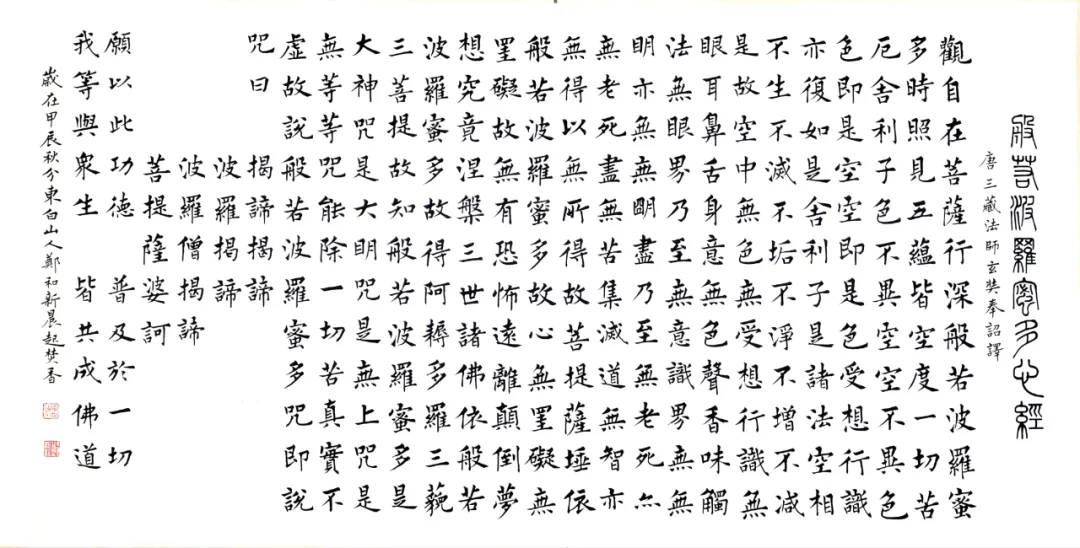 般若波羅蜜多心經
唐三藏法師玄奘奉詔譯
觀自在菩薩行深般若波羅蜜
多時照見五蘊皆空度一切苦
厄舍利子色不異空空不異色
色即是空空即是色受想行識
亦復如是舍利子是諸法空相
不生不滅不垢不淨不增不減
是故空中無色無受想行識無
眼耳鼻舌身意無色聲香味觸
法無眼界乃至無意識界無無
明亦無無明盡乃至無老死亦
無老死盡無苦集滅道無智亦
無得以無所得故菩提薩埵依
般若波羅蜜多故心無罣礙無
罣礙故無有恐怖遠離顛倒夢
想究竟涅槃三世諸佛依般若
波羅蜜多故得阿耨多羅三藐
三菩提故知般若波羅蜜多是
大神咒是大明咒是無上咒是
無等等咒能除一切苦真實不
虛故說般若波羅蜜多咒即說
咒曰
揭諦揭諦
波羅揭諦
波羅僧揭諦
菩提薩婆訶
願以此功德 普及於一切
我等與眾生 皆共成佛道
歲在甲辰秋分東白山人鄭和新晨起焚香